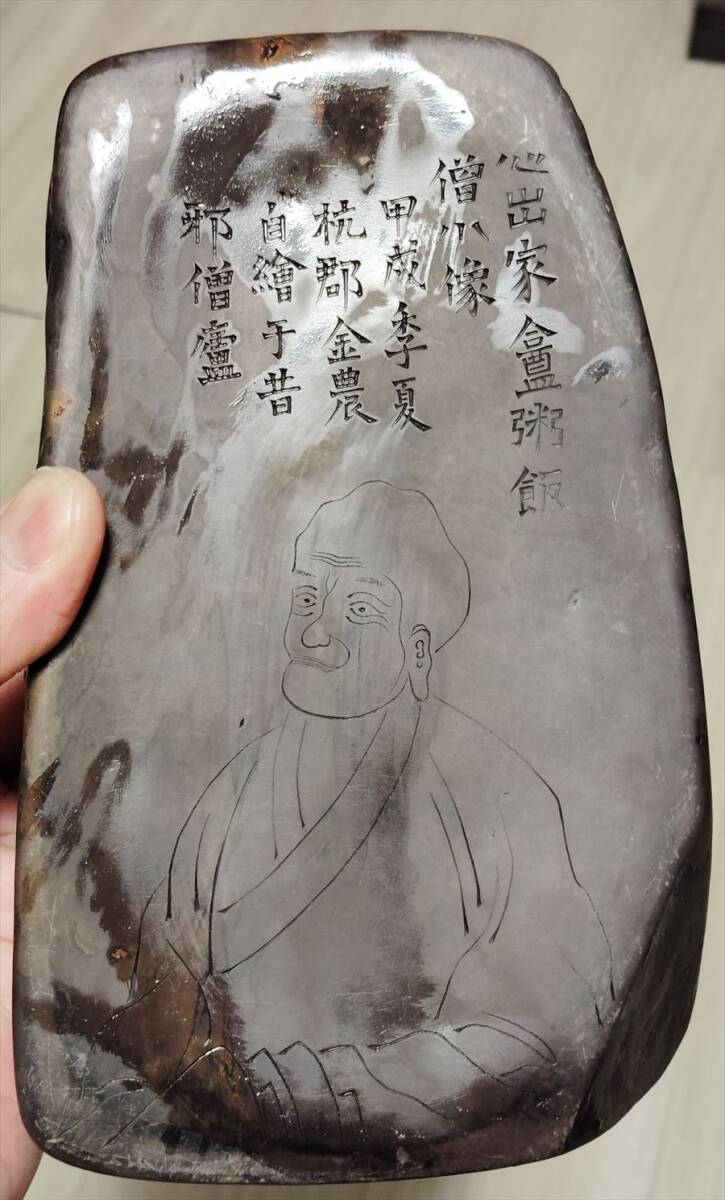 心出家盦粥飯
僧小像
甲戌季夏
杭郡金農
自繪于昔
邪僧廬